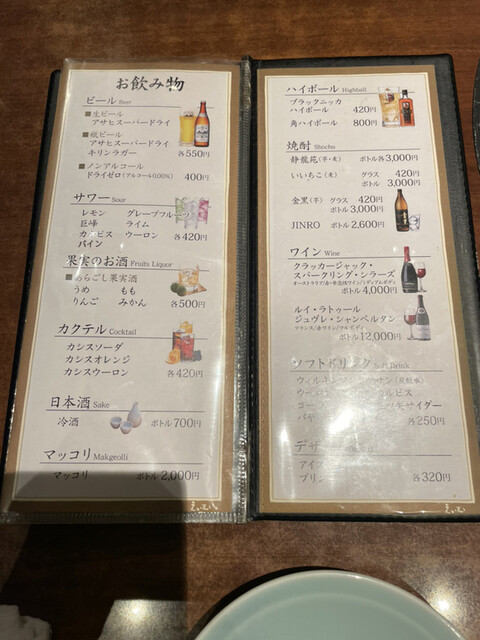 お飲み物
ビール Beer
■生ビール
アサヒスーパードライ
■瓶ビール
アサヒスーパードライ
キリンラガー 各550円
■ノンアルコール
ドライゼロ(アルコール0.00%) 400円
サワー Sour
レモン グレープフルーツ
巨峰 ライム
カルピス ウーロン 各420円
パイン
果実のお酒 Fruits Liquor
■あらごし果実酒
うめ もも
りんご みかん 各500円
カクテル Cocktail
カシスソーダ
カシスオレンジ 各420円
カシスウーロン
日本酒 Sake
冷酒 ボトル 700円
マッコリ Makgeolli
マッコリ ボトル 2,000円
ハイボール Highball
ブラックニッカ
ハイボール 420円
角ハイボール 800円
焼酎 Shochu
静龍苑(芋・麦) ボトル各3,000円
いいちこ(麦) グラス 420円
ボトル 3,000円
金黒(芋) グラス 420円
ボトル 3,000円
JINRO ボトル 2,600円
ワイン Wine
クラッカージャック・
スパークリング・シラーズ
オーストラリア/赤・辛泡性ワイン/ミディアムボディ
ボトル 4,000円
ルイ・ラトゥール
ジュヴレ・シャンベルタン
フランス/赤ワイン/フルボディ
ボトル 12,000円
ソフトドリンク Soft Drink
ウィルキンソン タンサン(炭酸水)
ウーロン カルピス
コー ツ矢サイダー
バヤ 各250円
デザ
アイ
プリン 各320円